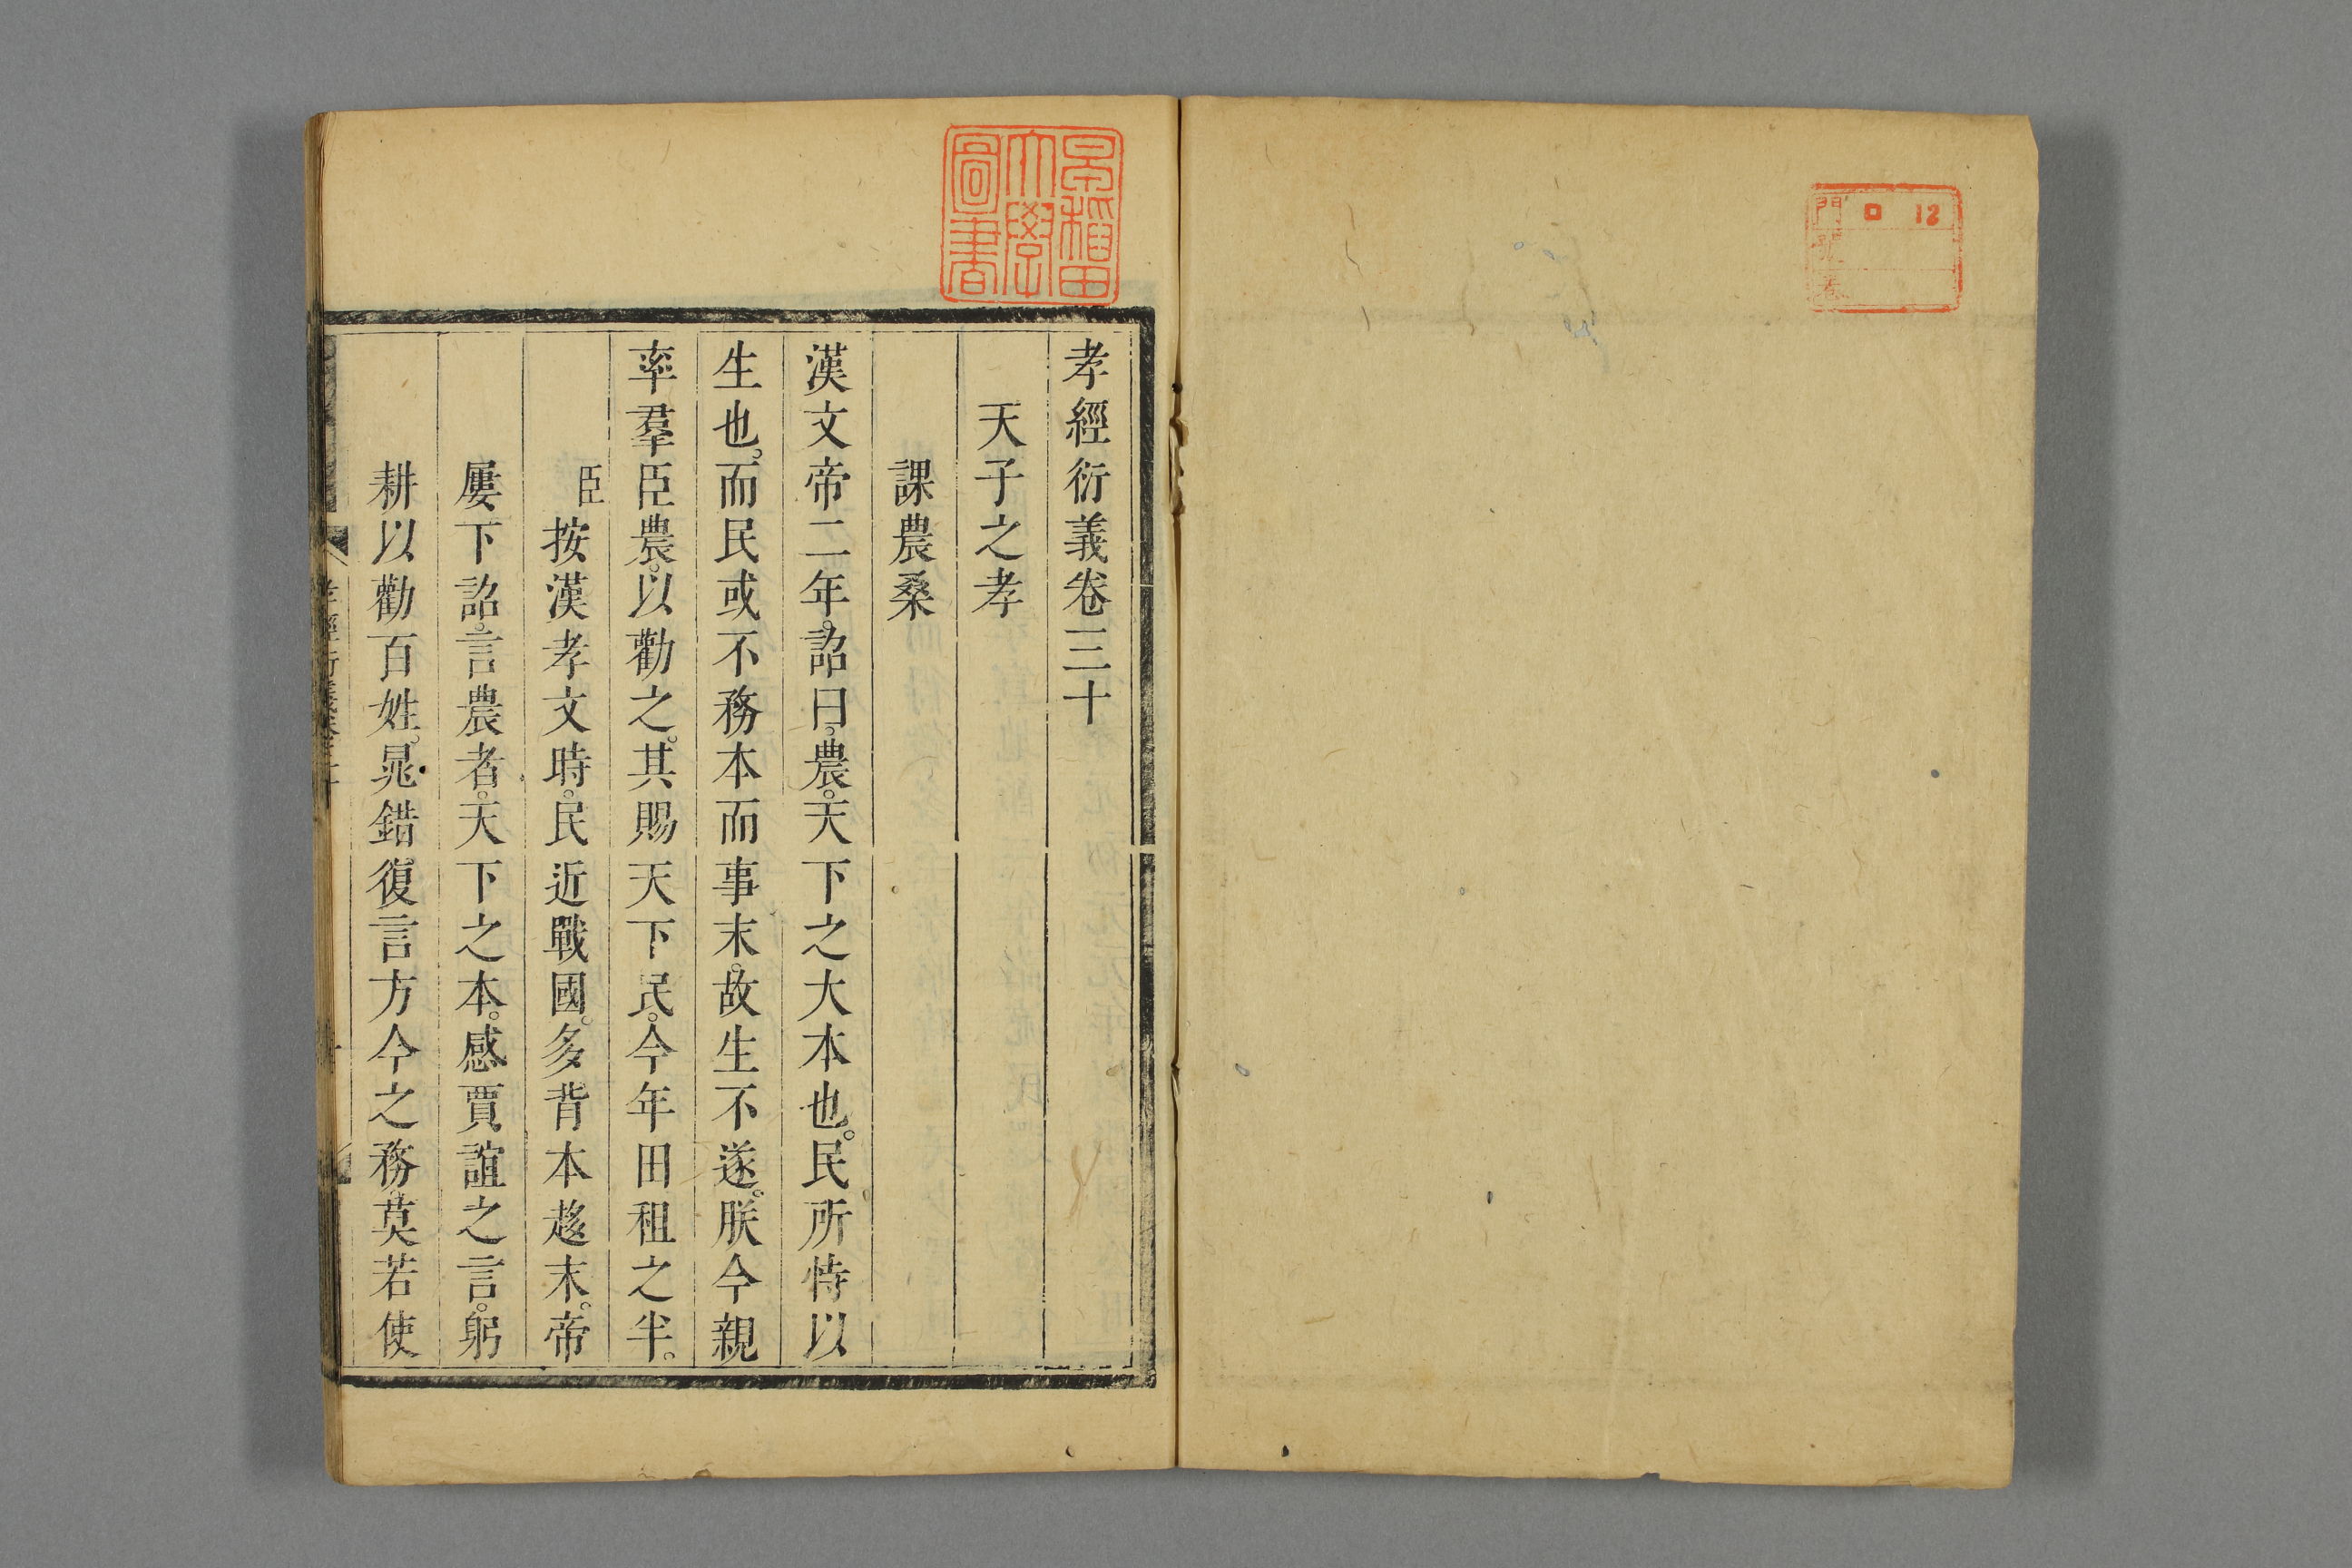 門 ロ 12
號
卷
早稲田
大學
圖書
孝經衍義卷三十
天子之孝
課農桑
漢文帝二年。詔曰。農。天下之大本也。民所恃以
生也。而民或不務本而事末。故生不遂。朕今親
率羣臣農。以勸之。其賜天下民。今年田租之半。
臣按漢孝文時。民近戰國。多背本趍末。帝
屢下詔。言農者。天下之本。感賈誼之言。躬
耕以勸百姓。晁錯復言方今之務。莫若使
孝經衍義卷三十